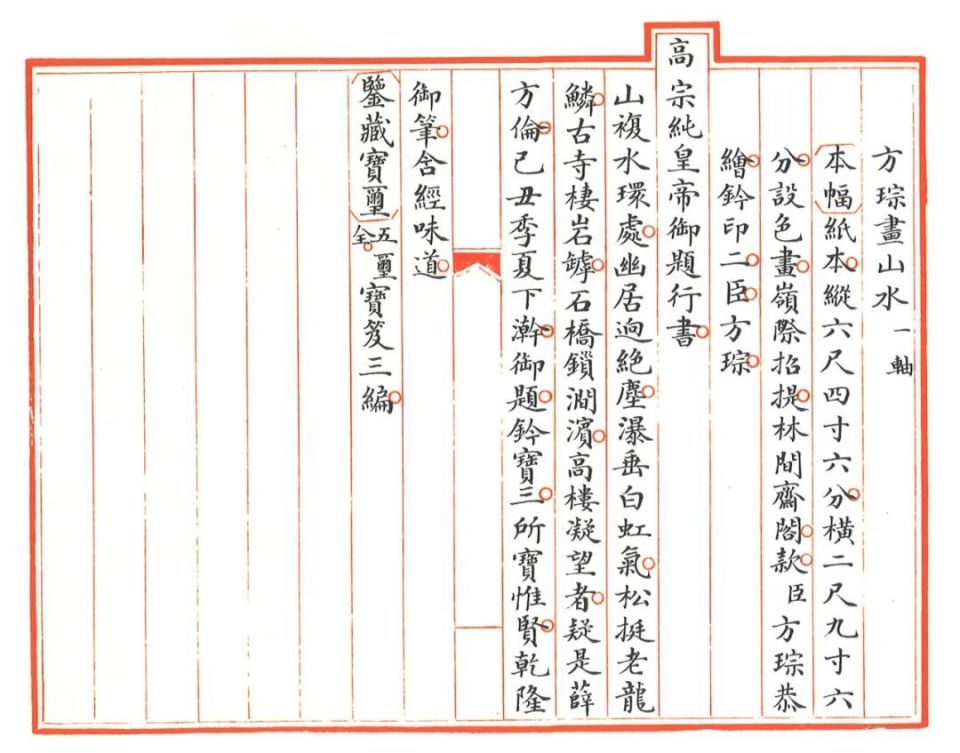 方琮畫山水一軸
本幅紙本縱六尺四寸六分橫二尺九寸六
分設色畫嶺際招提林間齋閣款臣方琮恭
繪鈐印二臣方琮
高宗純皇帝御題行書
山複水環處幽居逈絶塵瀑垂白虹氣松挺老龍
鱗古寺棲岩罅石橋鎖澗濱高樓凝望者疑是薛
方倫己丑季夏下澣御題鈐寶三所寶惟賢乾隆
御筆含經味道
鑒藏寶璽五璽全寶笈三編